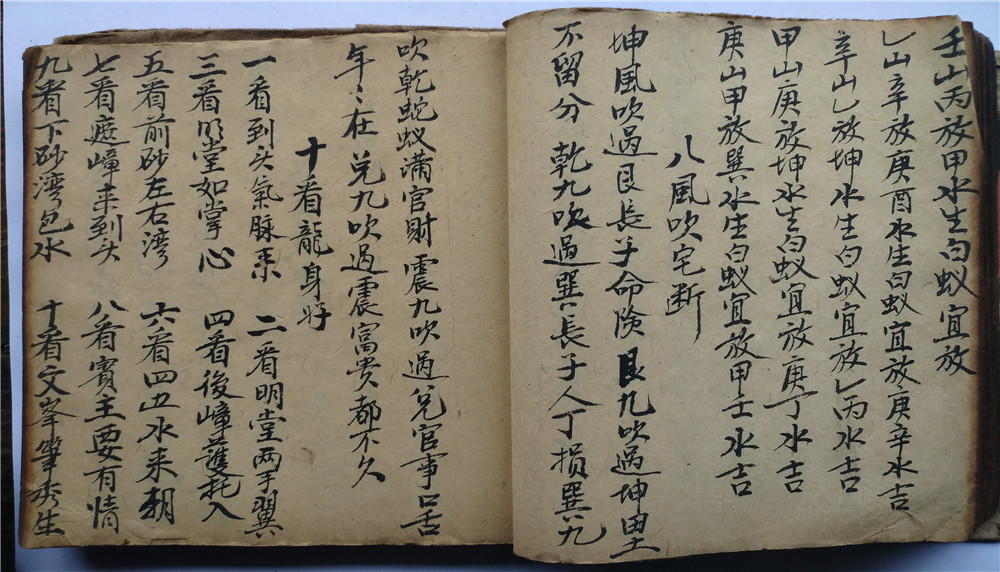 壬山丙放甲水生白蚁宜放
乚山辛放庚酉水生白蚁宜放庚辛水吉
辛山乚放坤水生白蚁宜放乚丙水吉
甲山庚放坤水生白蚁宜放庚丁水吉
庚山甲放巽水生白蚁宜放甲壬水吉
八風吹宅断
坤風吹過艮長子命険艮九吹過坤田
不留分 乾九吹過巽長子人丁損巽九
吹乾蛇蚁满官財 震九吹過兑官事口舌
年〻在 兑九吹過震富贵都不久
十看龍身好
一看到头氣脉来 二看明堂两手翼
三看明堂如掌心 四看後嶂護托入
五看前砂左右湾 六看四边水来朝
七看遮嶂来到头 八看賓主要有情
九看下砂湾包水 十看文峯筆秀生